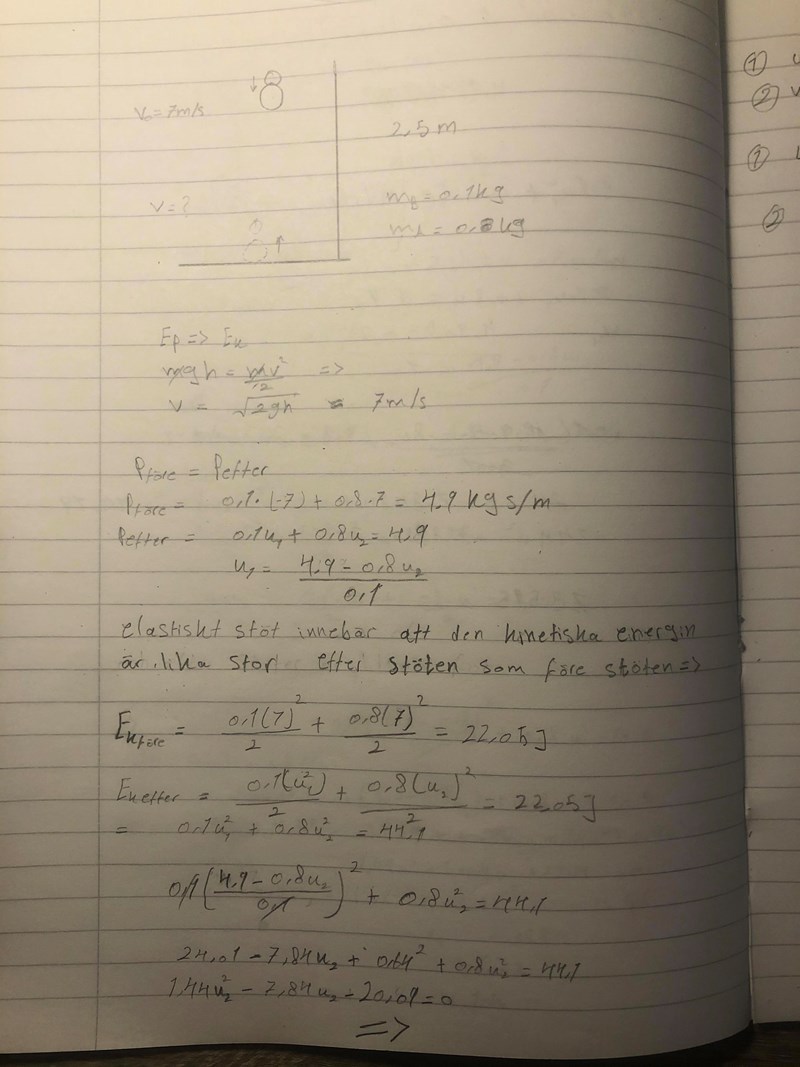 V₀ = 7m/s
2,5 m
V = ?
m_b = 0.1kg
m_A = 0.8 kg
Ep => Ek
mgh = mv²/2 =>
V = √2gh ≈ 7m/s
Pföre = Pefter
Pföre = 0,1·(-7) + 0,8·7 = 4,9 kg s/m
Pefter = 0,1u₁ + 0,8u₂ = 4,9
u₁ = (4,9 - 0,8u₂)/0,1
elastiskt stöt innebär att den kinetiska energin
är lika stor efter stöten som före stöten =>
Ekföre = 0,1(7)²/2 + 0,8(7)²/2 = 22,05 J
Ekefter = 0,1(u₁²)/2 + 0,8(u₂)²/2 = 22,05 J
= 0,1u₁² + 0,8u₂² = 44,1
0,1((4,9 - 0,8u₂)/0,1)² + 0,8u₂² = 44,1
24,01 - 7,84u₂ + 0,64² + 0,8u₂² = 44,1
1,44u₂² - 7,84u₂ - 20,09 = 0
=>
①
②
①
②